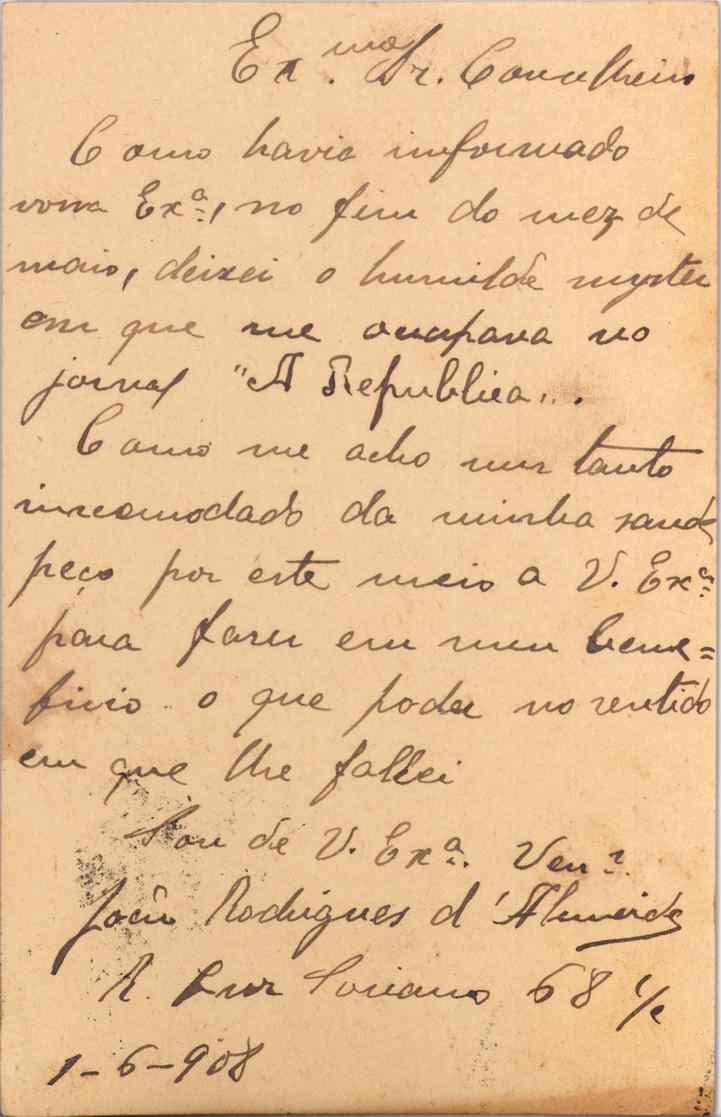 Ex.mo Sr. Conselheiro
Como havia informado
vossa Exª, no fim do mez de
maio, deixei o humilde myster
em que me occupava no
jornal "A Republica".
Como me acho um tanto
incomodado da minha saude
peço por este meio a V. Exª
para fazer em meu bene=
ficio o que poder no sentido
em que lhe fallei
Sou de V. Exª. Ven.
João Rodrigues d'Almeida
R. Luz Soriano 68
1-6-908